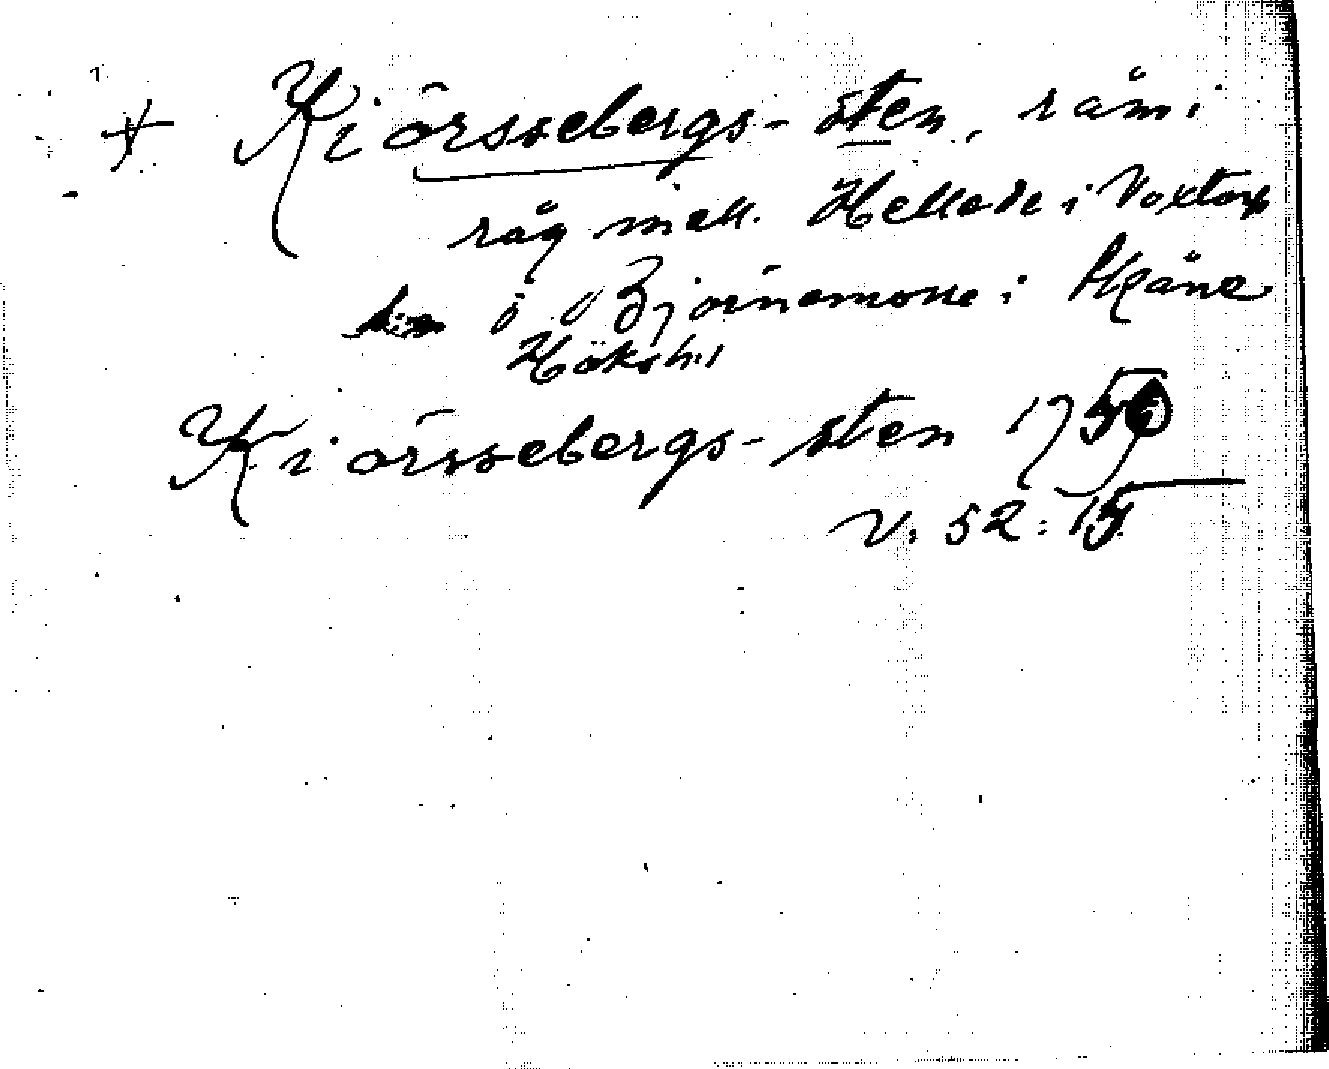 * Kiörssebergs-sten, råm i
råg mell. Hellade i Voxtorp
o Bjoinamone i Skåne
Höksh.
Kiörssebergs-sten 1750
V. 52:15